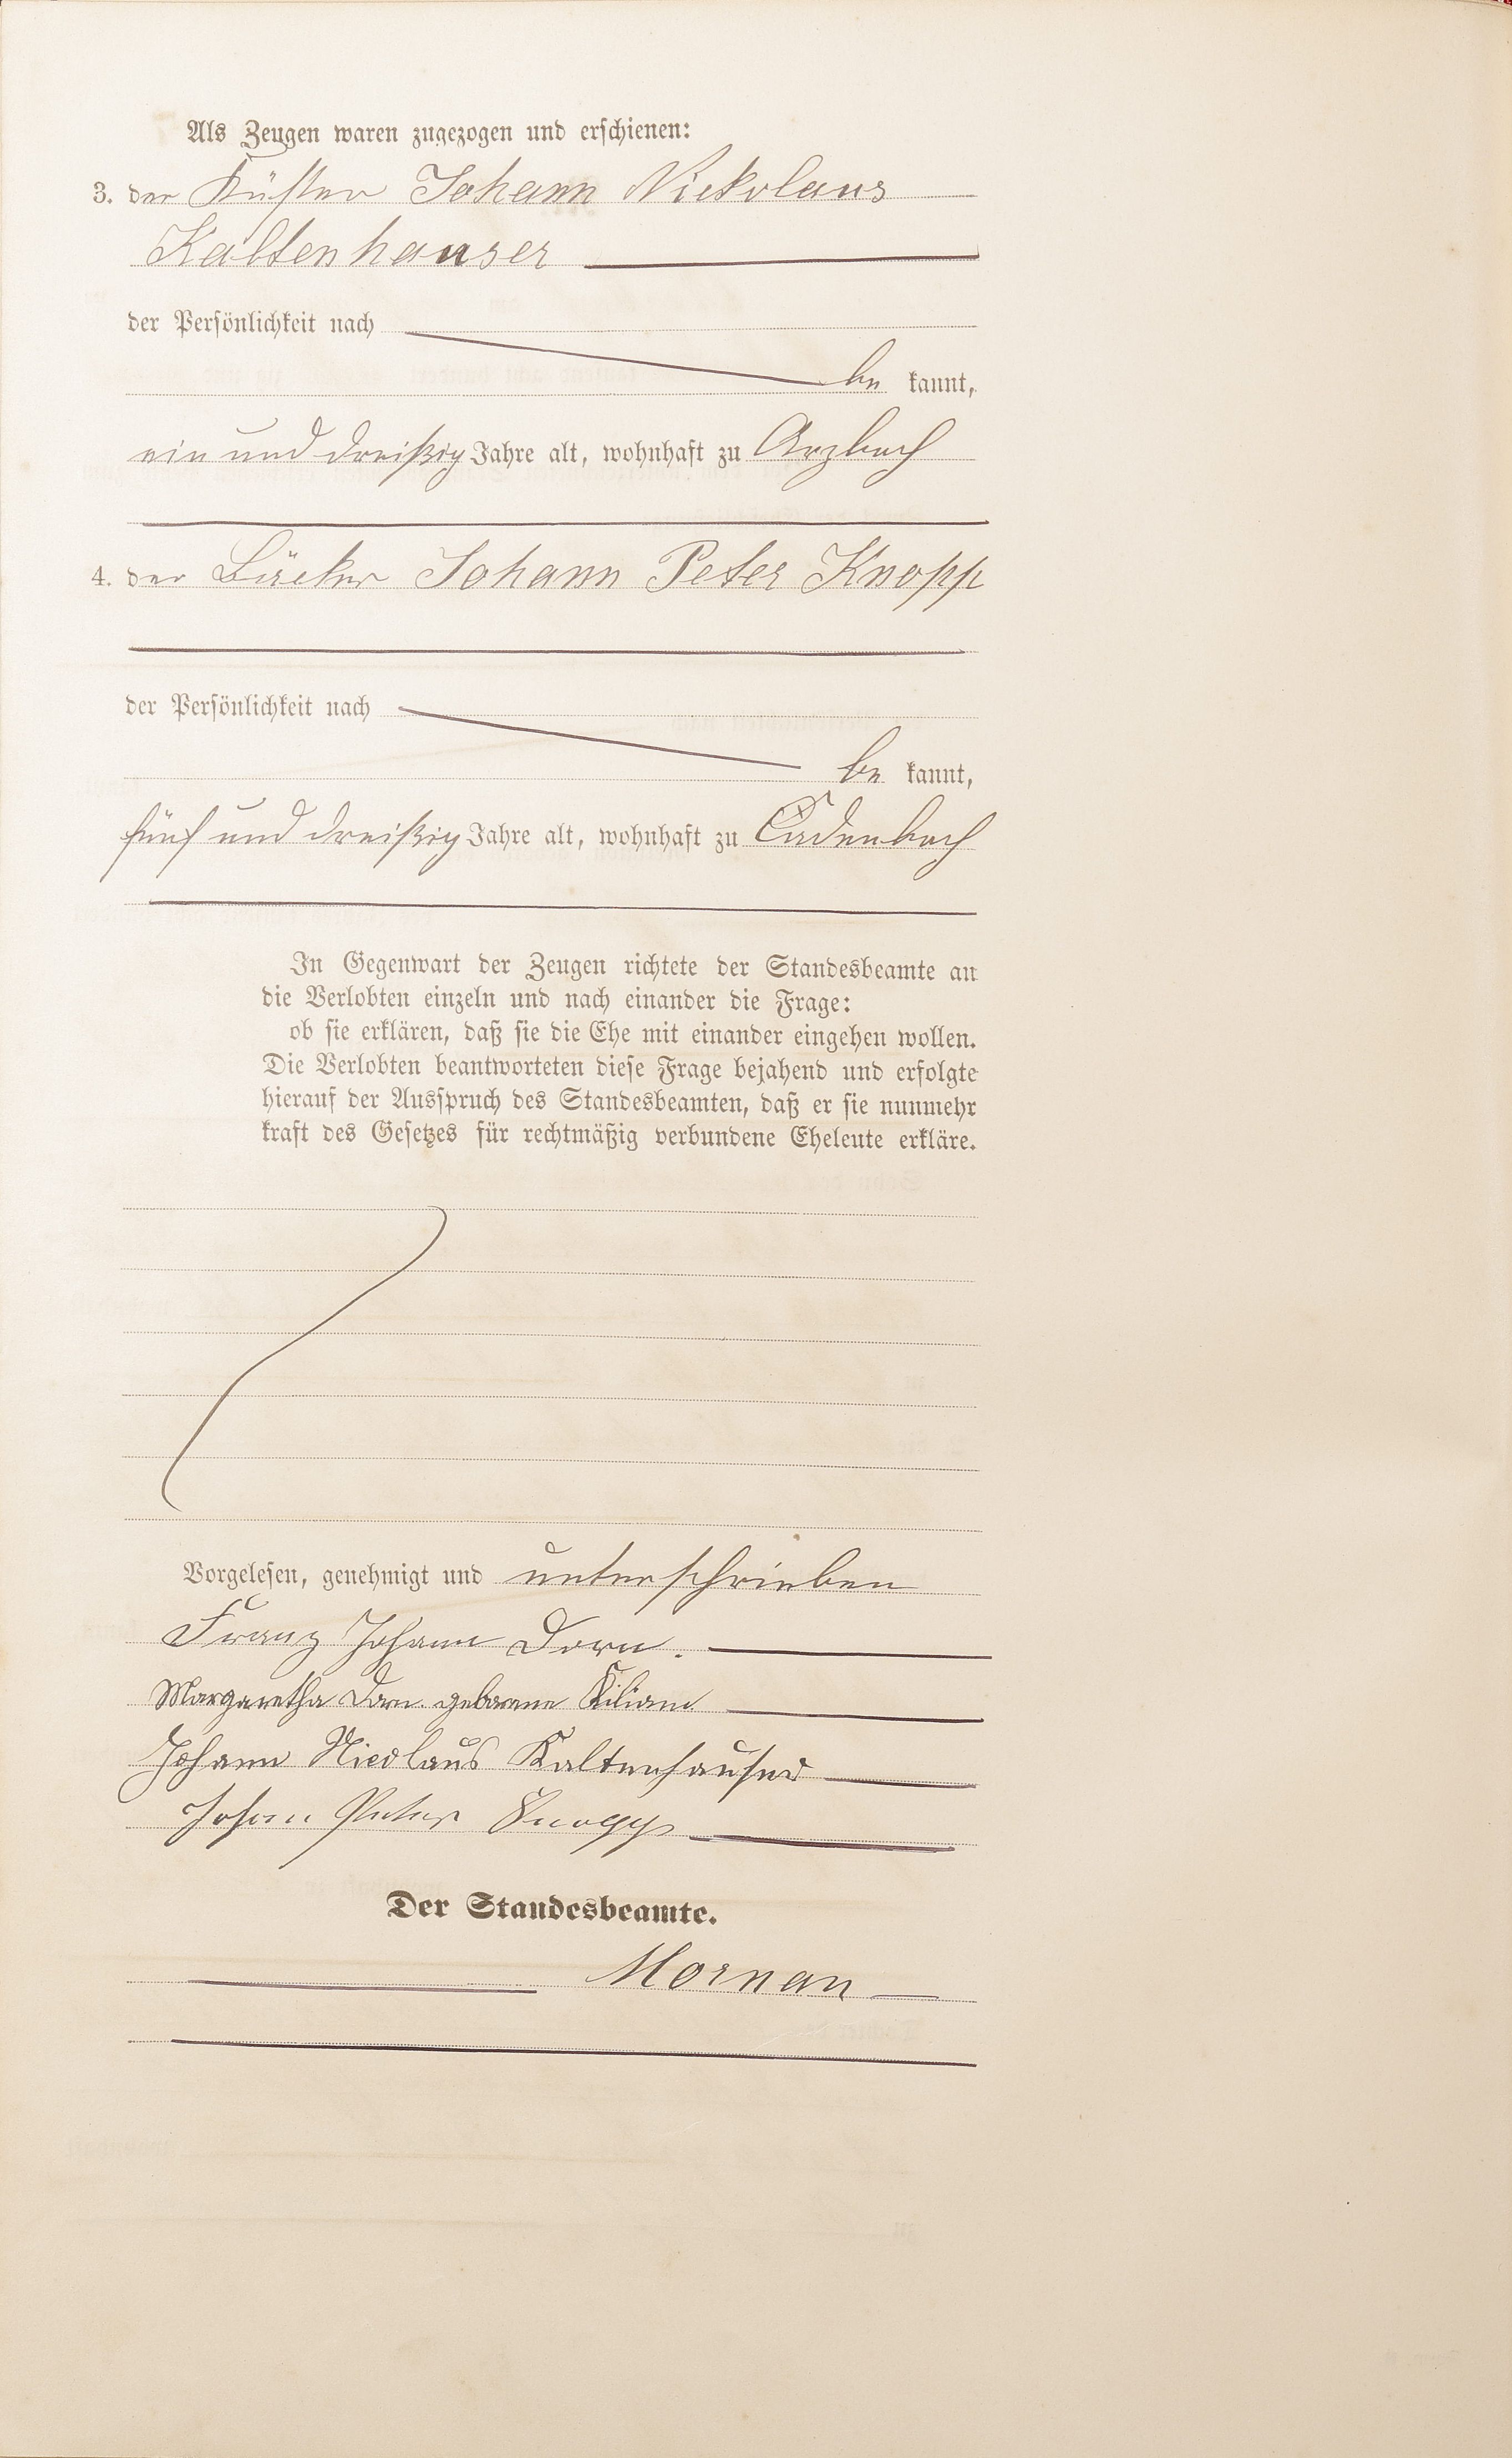 Als Zeugen waren zugezogen und erschienen:
3. der Küster Johann Nickolaus
Kaltenhauser
der Persönlichkeit nach
be kannt,
ein und dreißig Jahre alt, wohnhaft zu Arzbach
4. der Bäcker Johann Peter Knopp
der Persönlichkeit nach
be kannt,
fünf und dreißig Jahre alt, wohnhaft zu Cadenbach
In Gegenwart der Zeugen richtete der Standesbeamte an
die Verlobten einzeln und nach einander die Frage:
ob sie erklären, daß sie die Ehe mit einander eingehen wollen.
Die Verlobten beantworteten diese Frage bejahend und erfolgte
hierauf der Ausspruch des Standesbeamten, daß er sie nunmehr
kraft des Gesetzes für rechtmäßig verbundene Eheleute erkläre.
Vorgelesen, genehmigt und unterschrieben
Franz Johann Dorn.
Margaretha Dorn geborene Kilian
Johann Nicolaus Kaltenhauser
Johann Peter Knopp
Der Standesbeamte.
Mornau